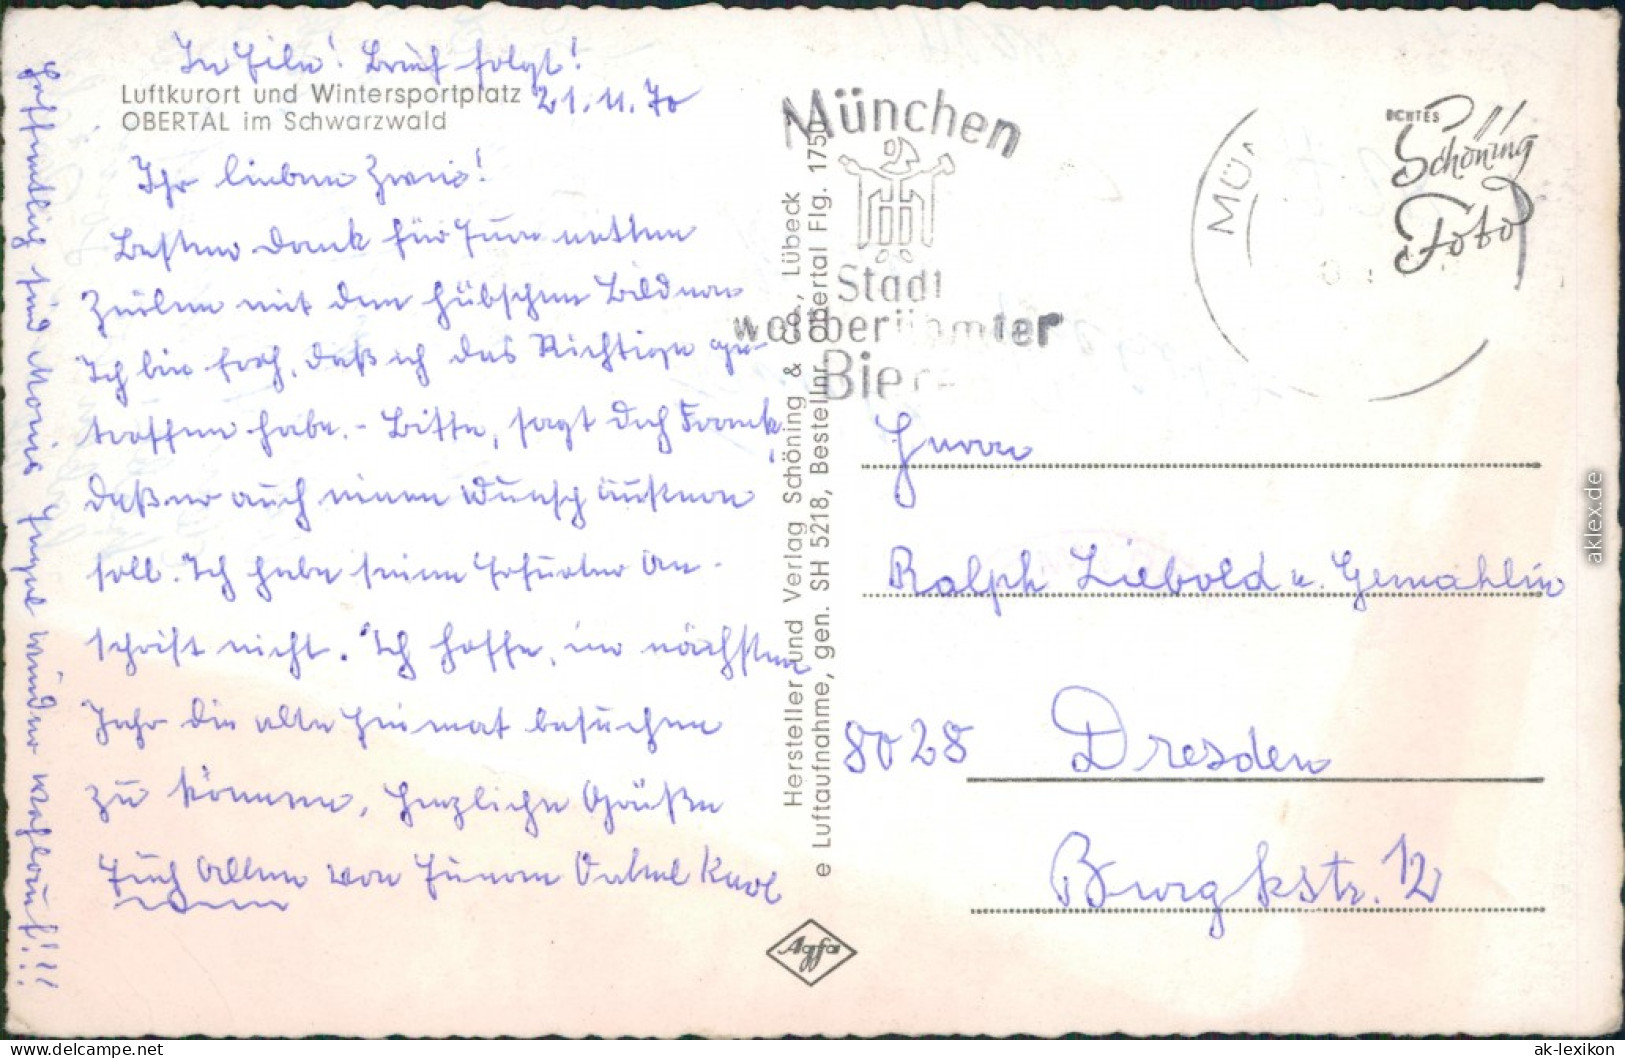 In Eile! Brief folgt!
Luftkurort und Wintersportplatz
OBERTAL im Schwarzwald
21.11.70
Ihr lieben Zwei!
Besten Dank für Eure netten
Zeilen mit den hübschen Bildern
Ich bin froh, daß ich das Richtige ge-
troffen habe. - Bitte, sagt doch Frank,
daß er auch einen Wunsch äußern
soll. Ich habe seine Erfurter An-
schrift nicht. Ich hoffe, im nächsten
Jahr die alte Heimat besuchen
zu können, Herzliche Grüße
Euch Allen von Eurem Onkel Karl
Hoffentlich sind Moni's Engel wieder wohlauf!!!
Hersteller und Verlag Schöning & Co., Lübeck
e Luftaufnahme, gen. SH 5218, Bestellnr. Obertal Flg. 1750
Agfa
München
Stadt
weltberühmter
Biere
MÜN
ECHTES
Schöning
Foto
Herrn
Ralph Liebold u. Gemahlin
8028 Dresden
Burgkstr. 12
aklex.de
www.delcampe.net
ak-lexikon